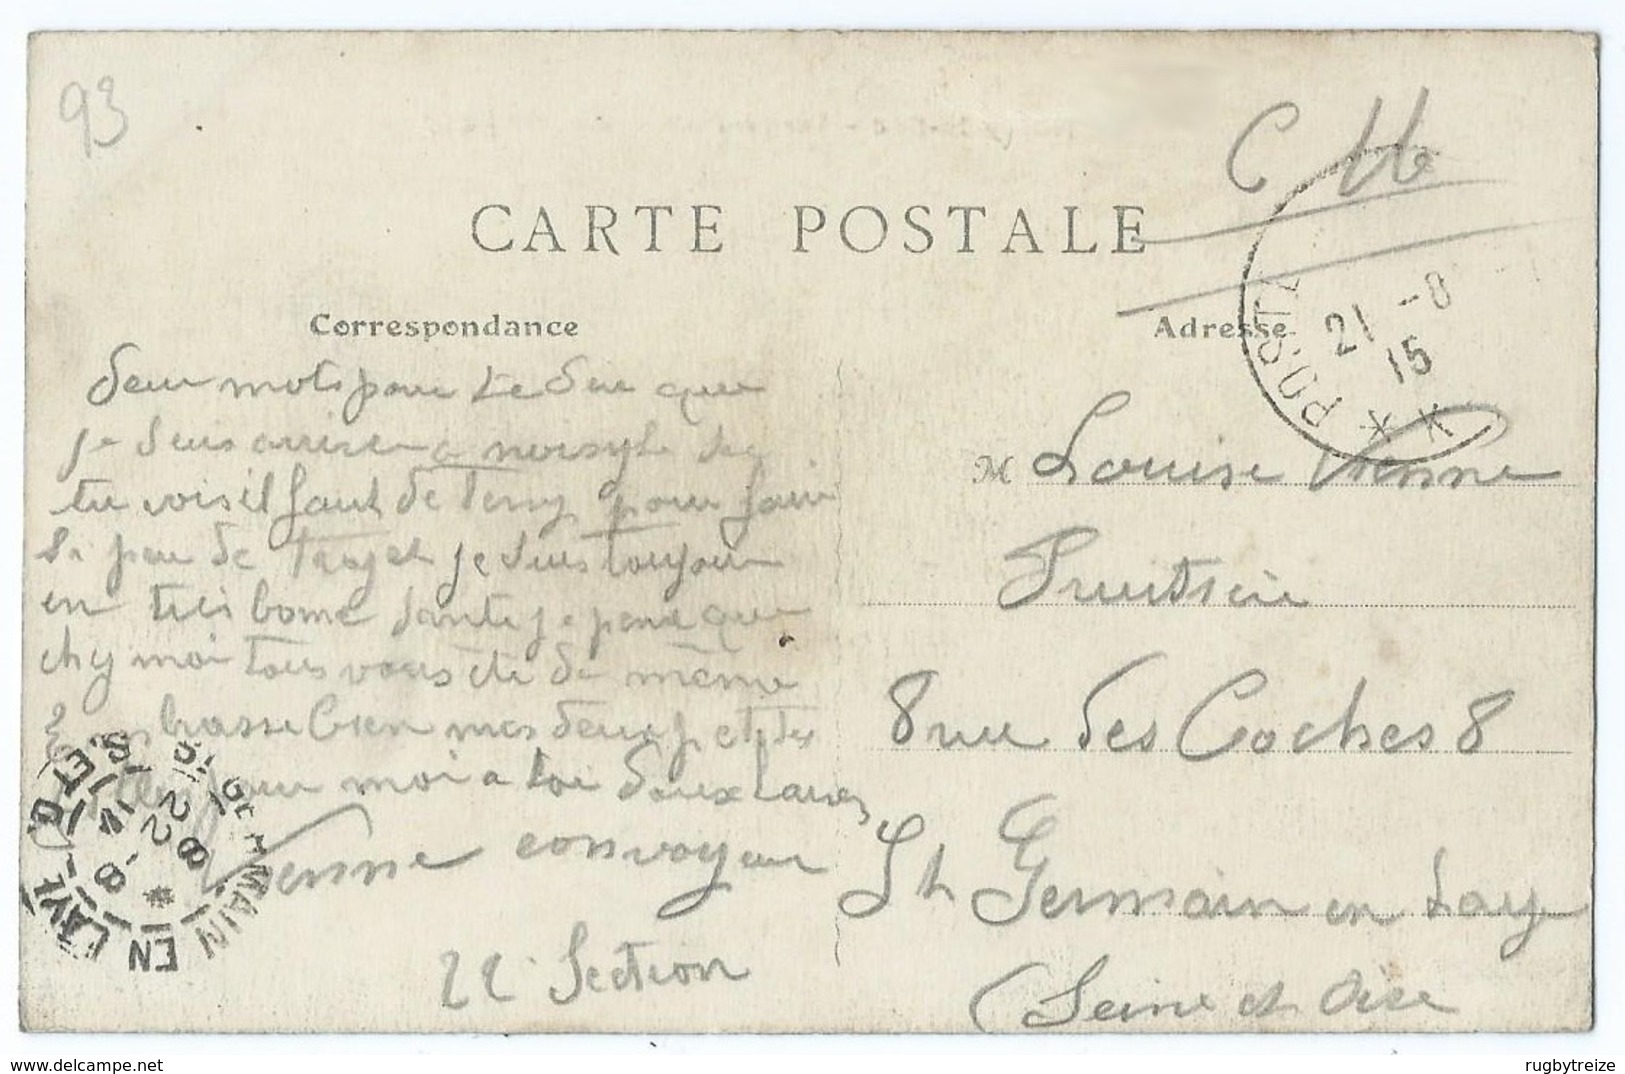 93
C
CARTE POSTALE
Correspondance
Adresse
POSTE
21 -8
15
mots pour te dire que
je suis arriver a noisy le sec
tu vois il faut de Temp pour fair
si peu de Trajet je suis toujour
en très bonne santé je pense que
chez moi tous vous ete de même
Embrasse bien mes deux petites
pour moi a toi doux
Vienne convoyeur
22e Section
M Louise Vienne
Fruitiere
8 rue des Coches 8
St Germain en Lay
(Seine et Oise
MAIN EN LAYE
S. ET O.
22 8
-8
www.delcampe.net
rugbytreize